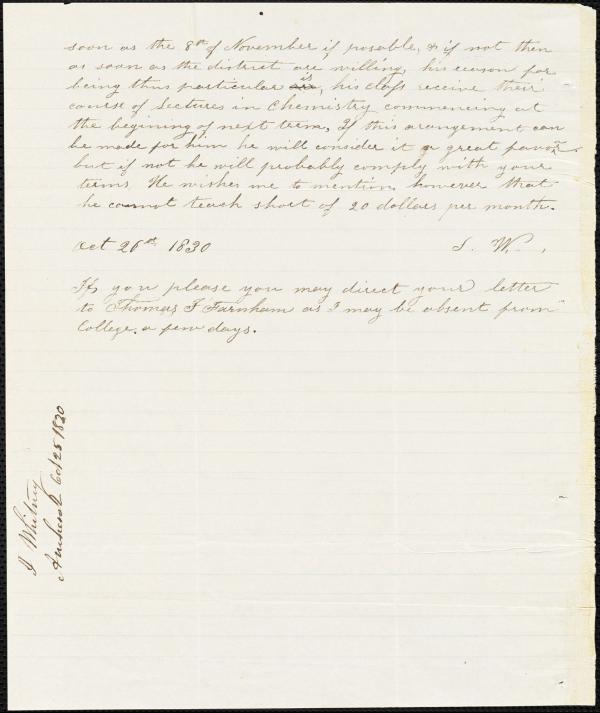 soon as the 8th of November if posable, & if not then
as soon as the district are willing, his reason for
being thus particular is, his class receive their
course of Lectures in Chemistry commencing at
the begining of next term. If this arangement can
be made for him he will consider it a great favor
but if not he will probably comply with your
terms. He wishes me to mention however that
he cannot teach short of 20 dollars per month.
Oct 26th 1830 S. W.
If you please you may direct your letter
to Thomas F Farnham as I may be absent from
College. a few days.
S Whitney
Amherst Oct 25 1830